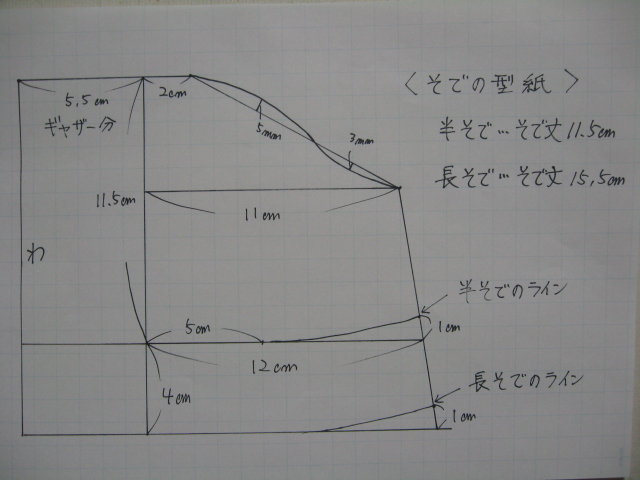 〈そでの型紙〉
半そで…そで丈11.5cm
長そで…そで丈15,5cm
5,5cm
ギャザー分
2cm
5mm
3mm
11.5cm
11cm
わ
半そでのライン
5cm
1cm
12cm
長そでのライン
4cm
1cm